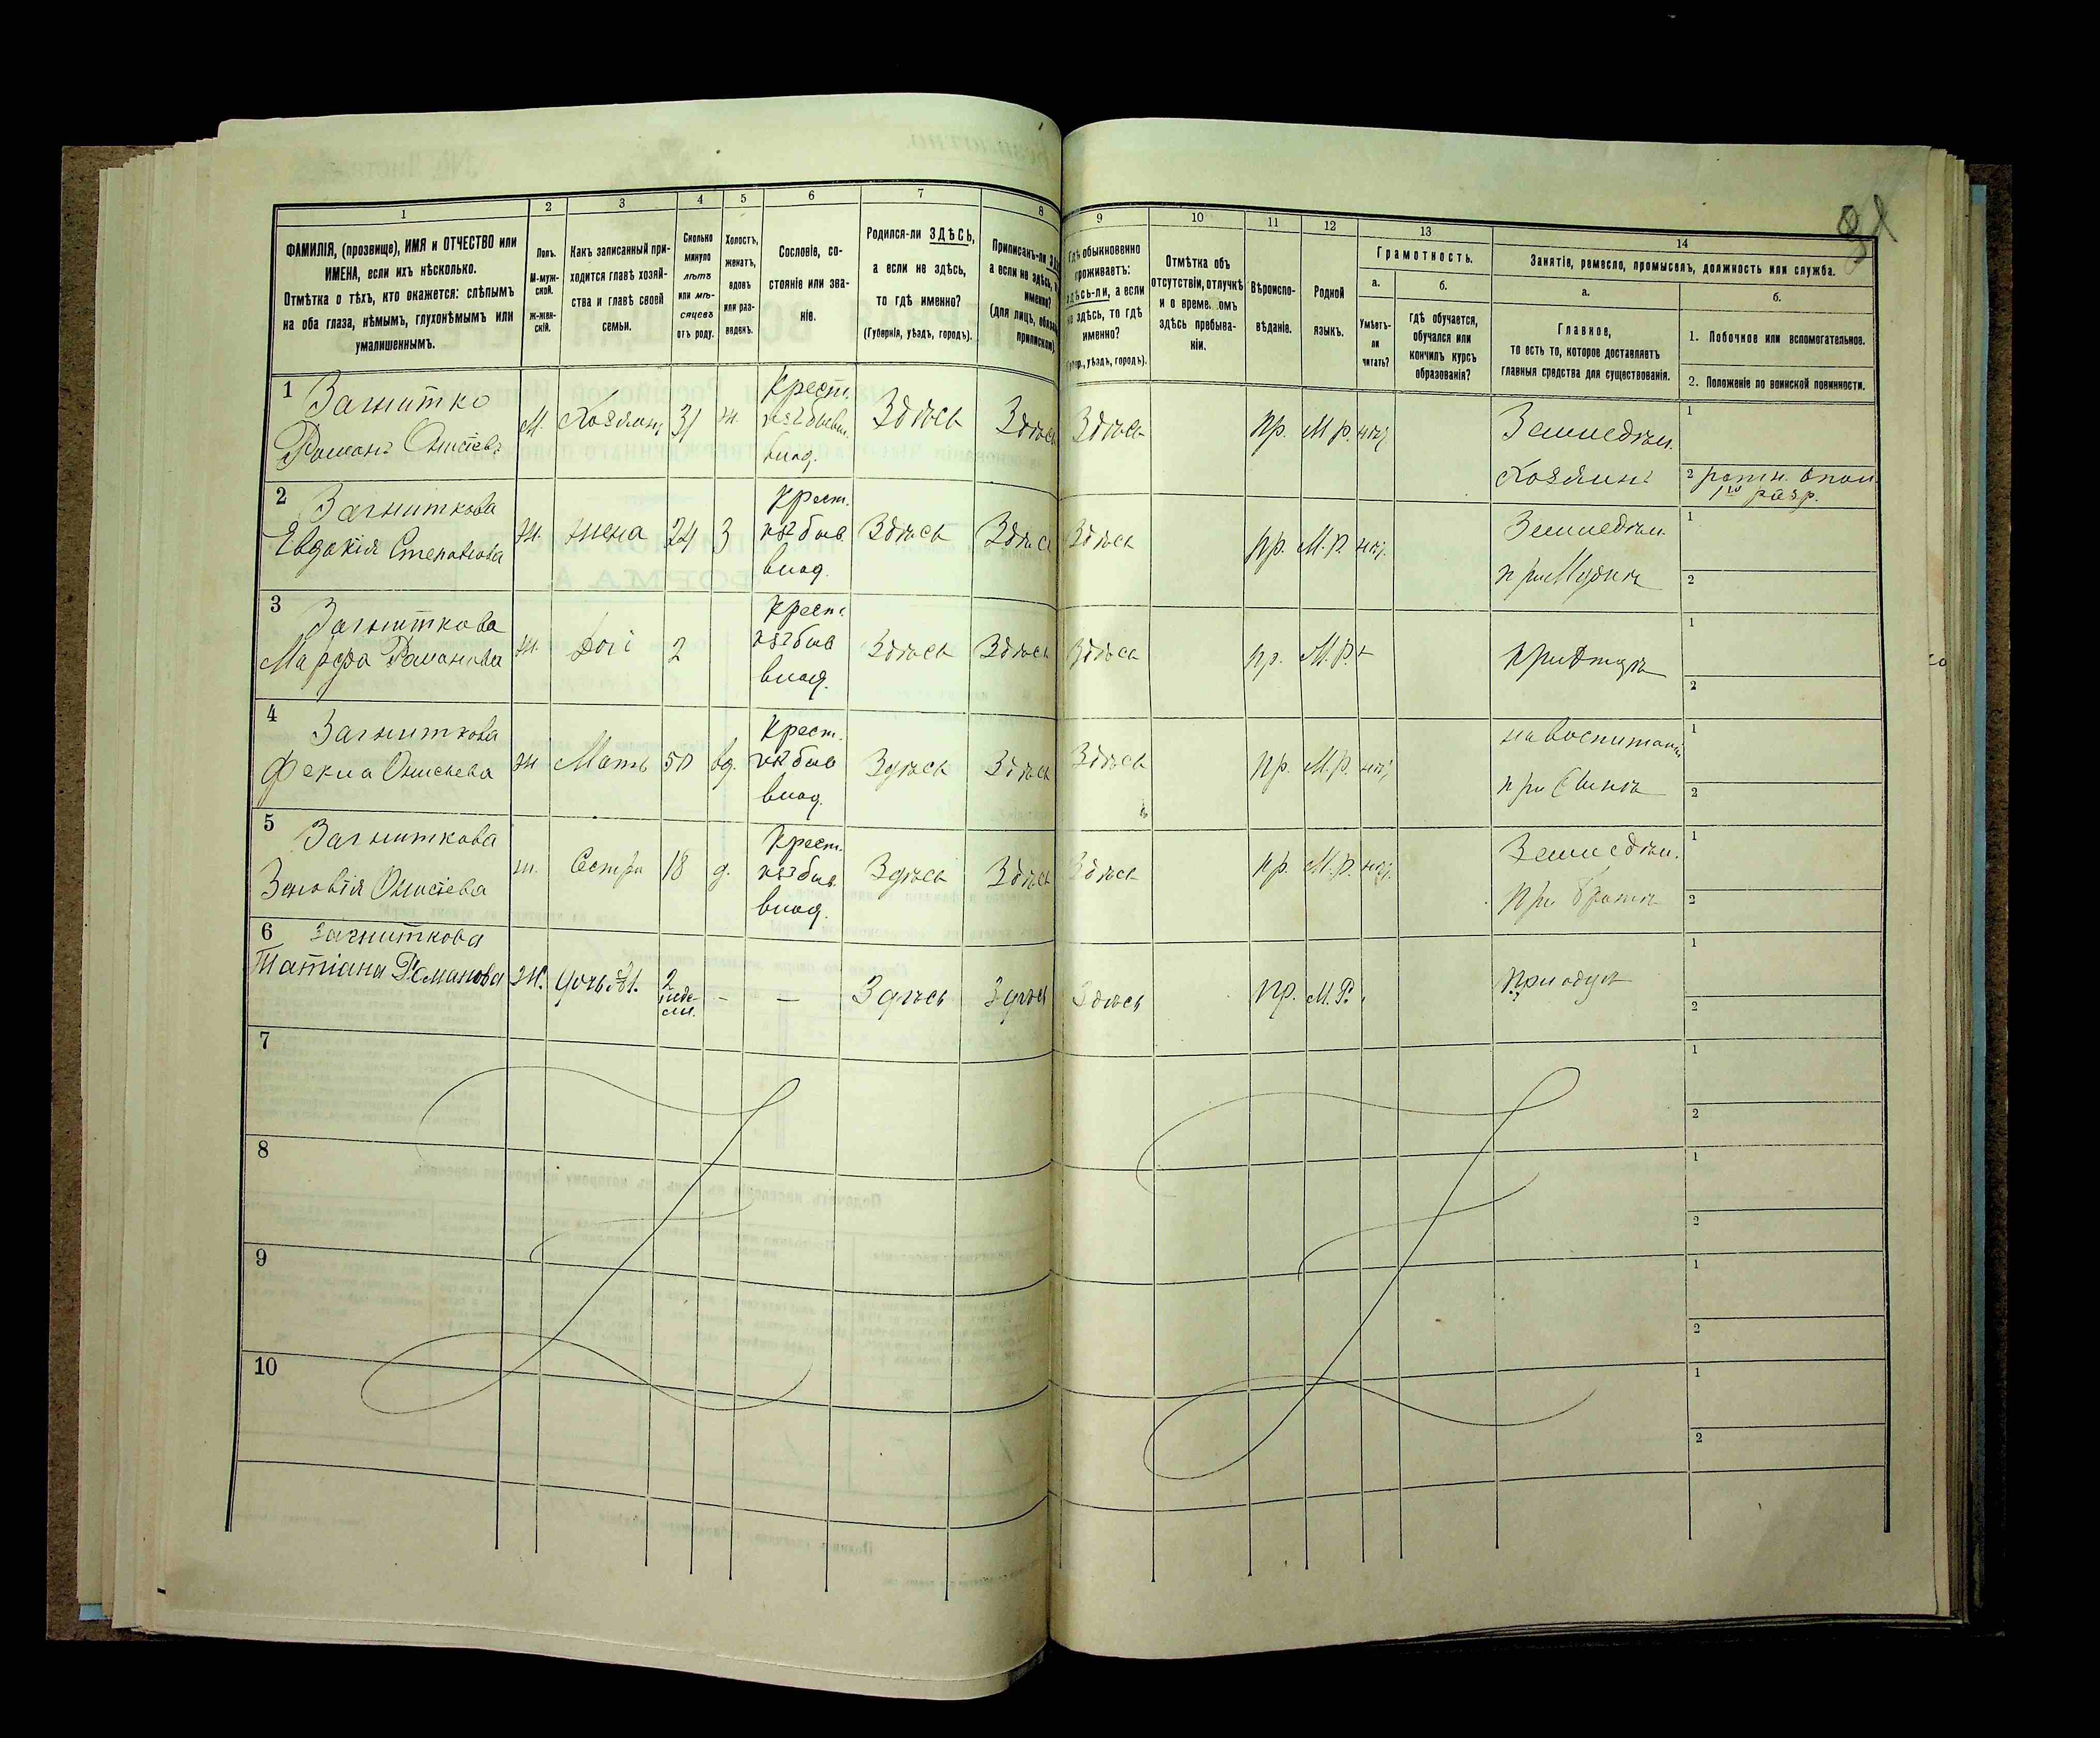 1
2
3
4
5
6
7
8
9
10
11
12
13
14
ФАМИЛІЯ, (прозвище), ИМЯ и ОТЧЕСТВО или
ИМЕНА, если ихъ нѣсколько.
Отмѣтка о тѣхъ, кто окажется: слѣпымъ
на оба глаза, нѣмымъ, глухонѣмымъ или
умалишеннымъ.
Полъ.
М-муж-
ской.
Ж-жен-
скій.
Какъ записанный при-
ходится главѣ хозяй-
ства и главѣ своей
семьи.
Сколько
минуло
лѣтъ
или мѣ-
сяцевъ
отъ роду.
Холостъ,
женатъ,
вдовъ
или раз-
веденъ.
Сословіе, со-
стояніе или зва-
ніе.
Родился-ли ЗДѢСЬ,
а если не здѣсь,
то гдѣ именно?
(Губернія, уѣздъ, городъ).
Приписанъ-ли
а если не здѣсь,
именно?
(для лицъ,
припискою)
Гдѣ обыкновенно
проживаетъ:
здѣсь-ли, а если
не здѣсь, то гдѣ
именно?
уѣздъ, городъ).
Отмѣтка объ
отсутствіи, отлучкѣ
и о време. омъ
здѣсь пребыва-
ніи.
Вѣроиспо-
вѣданіе.
Родной
языкъ.
Грамотность.
а.
Умѣетъ-
ли
читать?
б.
гдѣ обучается,
обучался или
кончилъ курсъ
образованія?
Занятіе, ремесло, промыселъ, должность или служба.
а.
Главное,
то есть то, которое доставляетъ
главныя средства для существованія.
б.
1. Побочное или вспомогательное.
2. Положеніе по воинской повинности.
1 Загнитко
Романъ Онисіевъ
М. Хозяинъ 31 ж.
Крест.
влад.
Здѣсь Здѣсь Здѣсь пр. М.р. нѣт
Земледѣл.
Хозяинъ
1
2 ратн. опол.
1го разр.
2 Загниткова
Евдокія Степанова
Ж. жена 24 З
Крест.
из быв.
влад.
Здѣсь Здѣсь Здѣсь пр. М.р. нѣт.
Земледѣл.
при Мужѣ
1
2
3 Загниткова
Марфа Романова
Ж. Дочь 2
Крест.
из быв
влад.
Здѣсь Здѣсь Здѣсь пр. М.р. -
при Отцѣ
1
2
4 Загниткова
Фекла Онисьева
Ж Мать 50 вд.
Крест.
из быв
влад.
Здѣсь Здѣсь Здѣсь пр. М.р. нѣт
на воспитаніи
при Сынѣ
1
2
5 Загниткова
Зиновія Онисіева
ж. Сестра 18 д.
Крест.
из быв.
влад.
Здѣсь Здѣсь Здѣсь пр. М.р. нѣт.
Земледѣл.
при братѣ
1
2
6 Загниткова
Татіана Романова
Ж. дочь
2
неде-
ли.
- - Здѣсь Здѣсь Здѣсь пр. М.Р.
при отцѣ
1
2
7
1
2
8
1
2
9
1
2
10
1
2